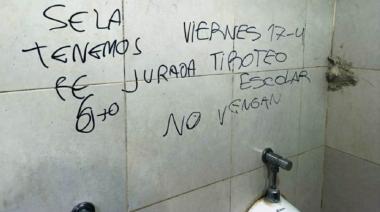 SE LA
TENEMOS
RE JURADA TIROTEO
6to
VIERNES 17-4
ESCOLAR
NO VENGAN